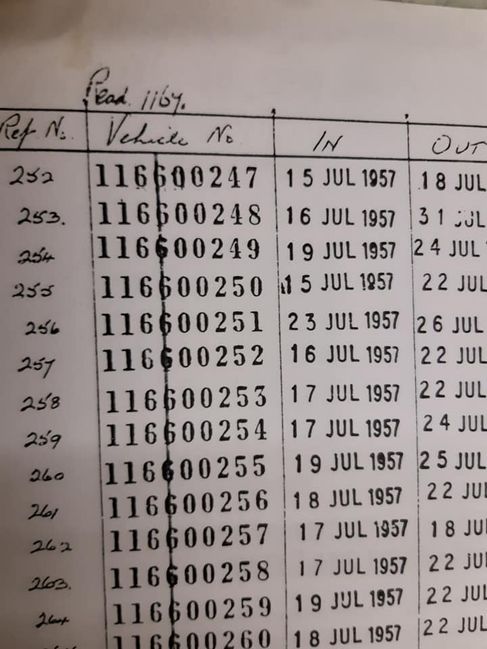 Read. 1164.
Ref No. Vehicle No IN OUT
252 116600247 15 JUL 1957 18 JUL
253. 116600248 16 JUL 1957 31 JUL
254 116600249 19 JUL 1957 24 JUL
255 116600250 15 JUL 1957 22 JUL
256 116600251 23 JUL 1957 26 JUL
257 116600252 16 JUL 1957 22 JUL
258 116600253 17 JUL 1957 22 JUL
259 116600254 17 JUL 1957 24 JUL
260 116600255 19 JUL 1957 25 JUL
261 116600256 18 JUL 1957 22 JUL
262 116600257 17 JUL 1957 18 JUL
263. 116600258 17 JUL 1957 22 JUL
264 116600259 19 JUL 1957 22 JUL
116600260 18 JUL 1957 22 JUL